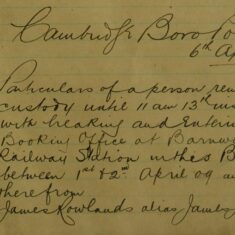 Cambridge Boro Po
6th Ap
Particulars of a person rem
custody until 11 am 13th ins
with breaking and Enterin
Booking Office at Barnw
Railway Station in this B
between 1st & 2nd April 09 an
therefrom
James Rowlands alias James